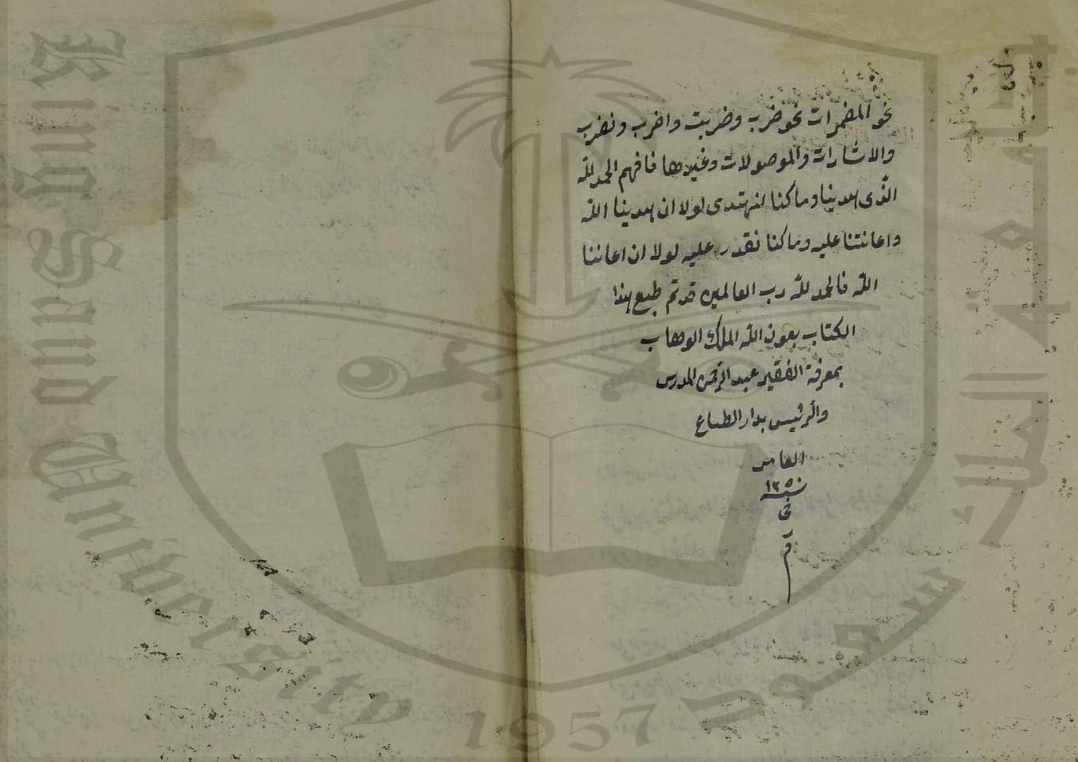 نحو المضمرات نحو ضرب وضربت واضرب ونضرب
والاشارات والموصولات وغيرها فافهم الحمد لله
الذى هدينا وما كنا لنهتدى لولا ان هدينا الله
واعانتنا عليه وما كنا نقدر عليه لولا ان اعاننا
الله فالحمد لله رب العالمين قد تم طبع هذا
الكتاب بعون الله الملك الوهاب
بمعرفة الفقير عبد الرحمن المدرس
والرئيس بدار الطباع
العامر
سنة ١٢٥٠
تم
King Saud University
جامعة الملك سعود
1957